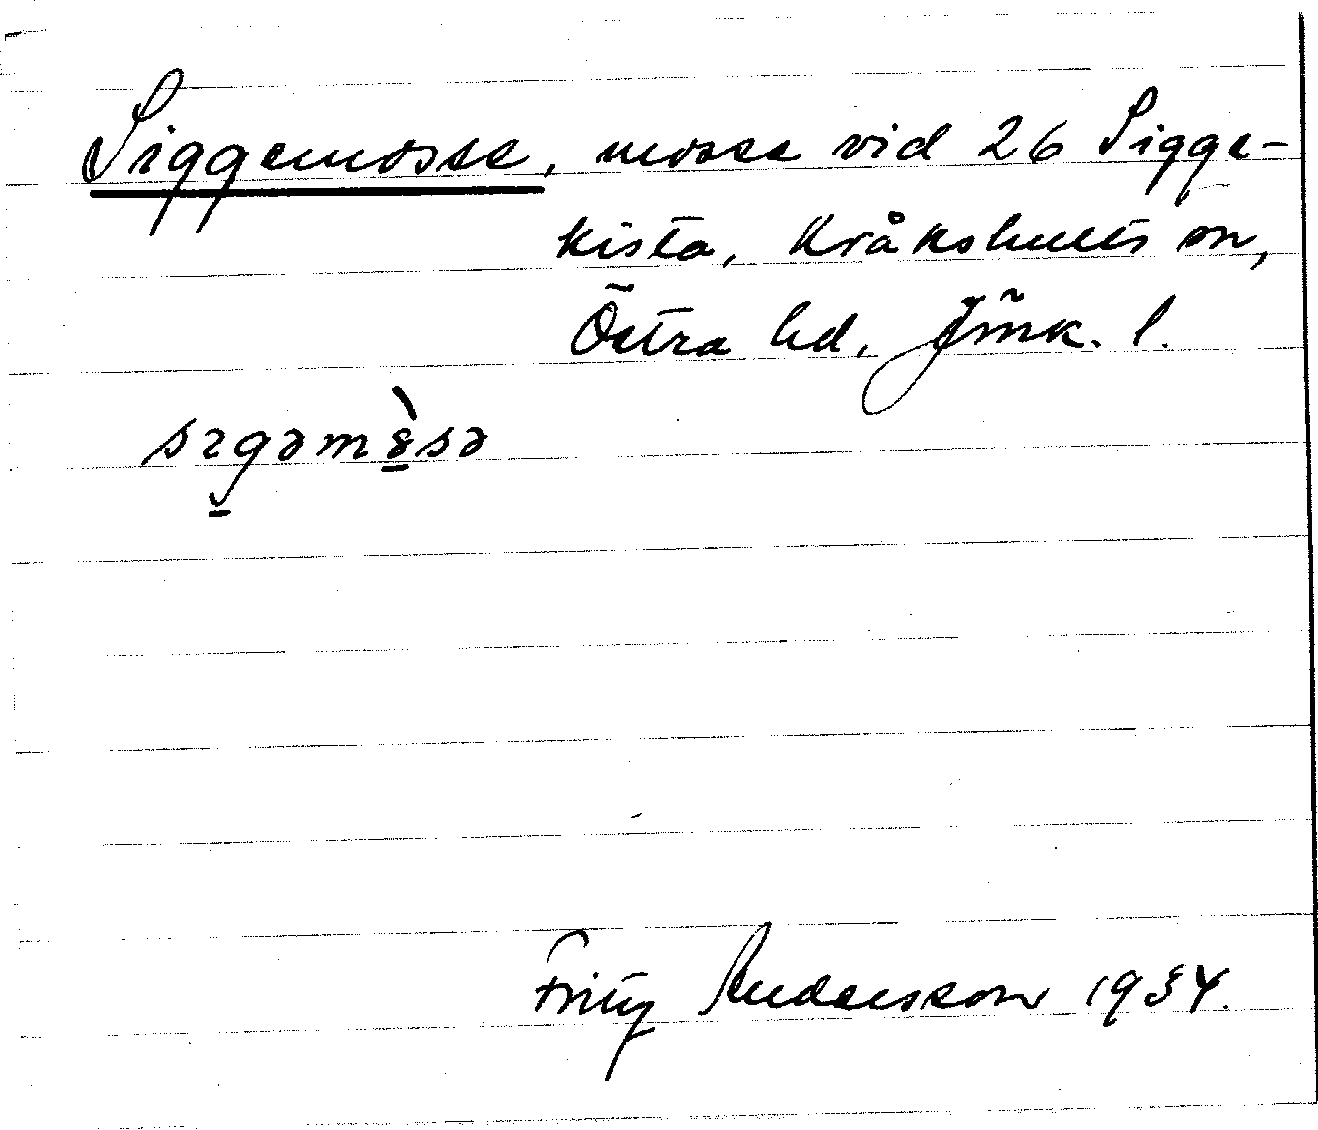 Siggemosse, mosse vid 26 Sigge-
kista, Kråkshults sn,
Östra hd, Jönk. l.
Fritz Andersson 1934.